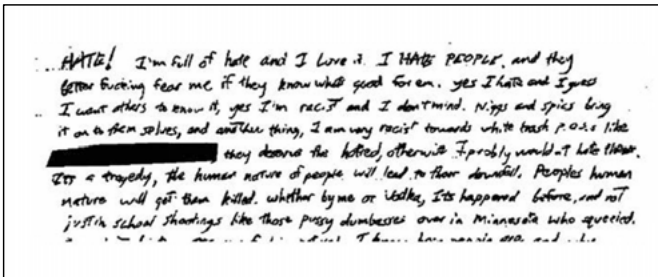 HATE! I'm full of hate and I love it. I HATE PEOPLE, and they
better fucking fear me if they know whats good for em. yes I hate and I guess
I want others to know it, yes I'm racist and I don't mind. Nigs and spics bring
it on to them selves, and another thing, I am very racist towards white trash p.o.s like
they deserve the hatred, otherwise I probly would n't hate them.
Its a tragedy, the human nature of people will lead to their downfall. Peoples human
nature will get them killed. whether by me or Vodka, Its happened before, and not
just in school shootings like those pussy dumbasses over in Minnesota who squeeled.